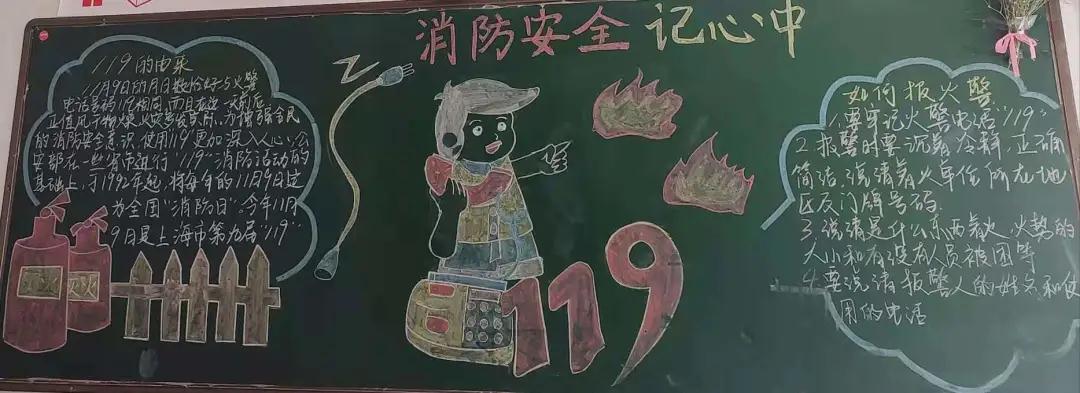 消防安全 记心中
119的由来
11月9日的月日数恰好与火警
电话号码119相同,而且在这一天前后,
正值风干物燥火灾多发之际,为增强全民
的消防安全意识,使用"119"更加深入人心,公
安部在一些省市进行"119"消防活动的
基础上,于1992年起,将每年的11月9日定
为全国"消防日",今年11月
9日是上海市第九届"119"
灭火
灭火
119
如何报火警
1.要牢记火警电话"119"
2.报警时要沉着冷静,正确
简洁,说清着火单位所在地
区及门牌号码.
3.说清是什么东西着火,火势的
大小和有没有人员被困等
4.要说清报警人的姓名和使
用的电话